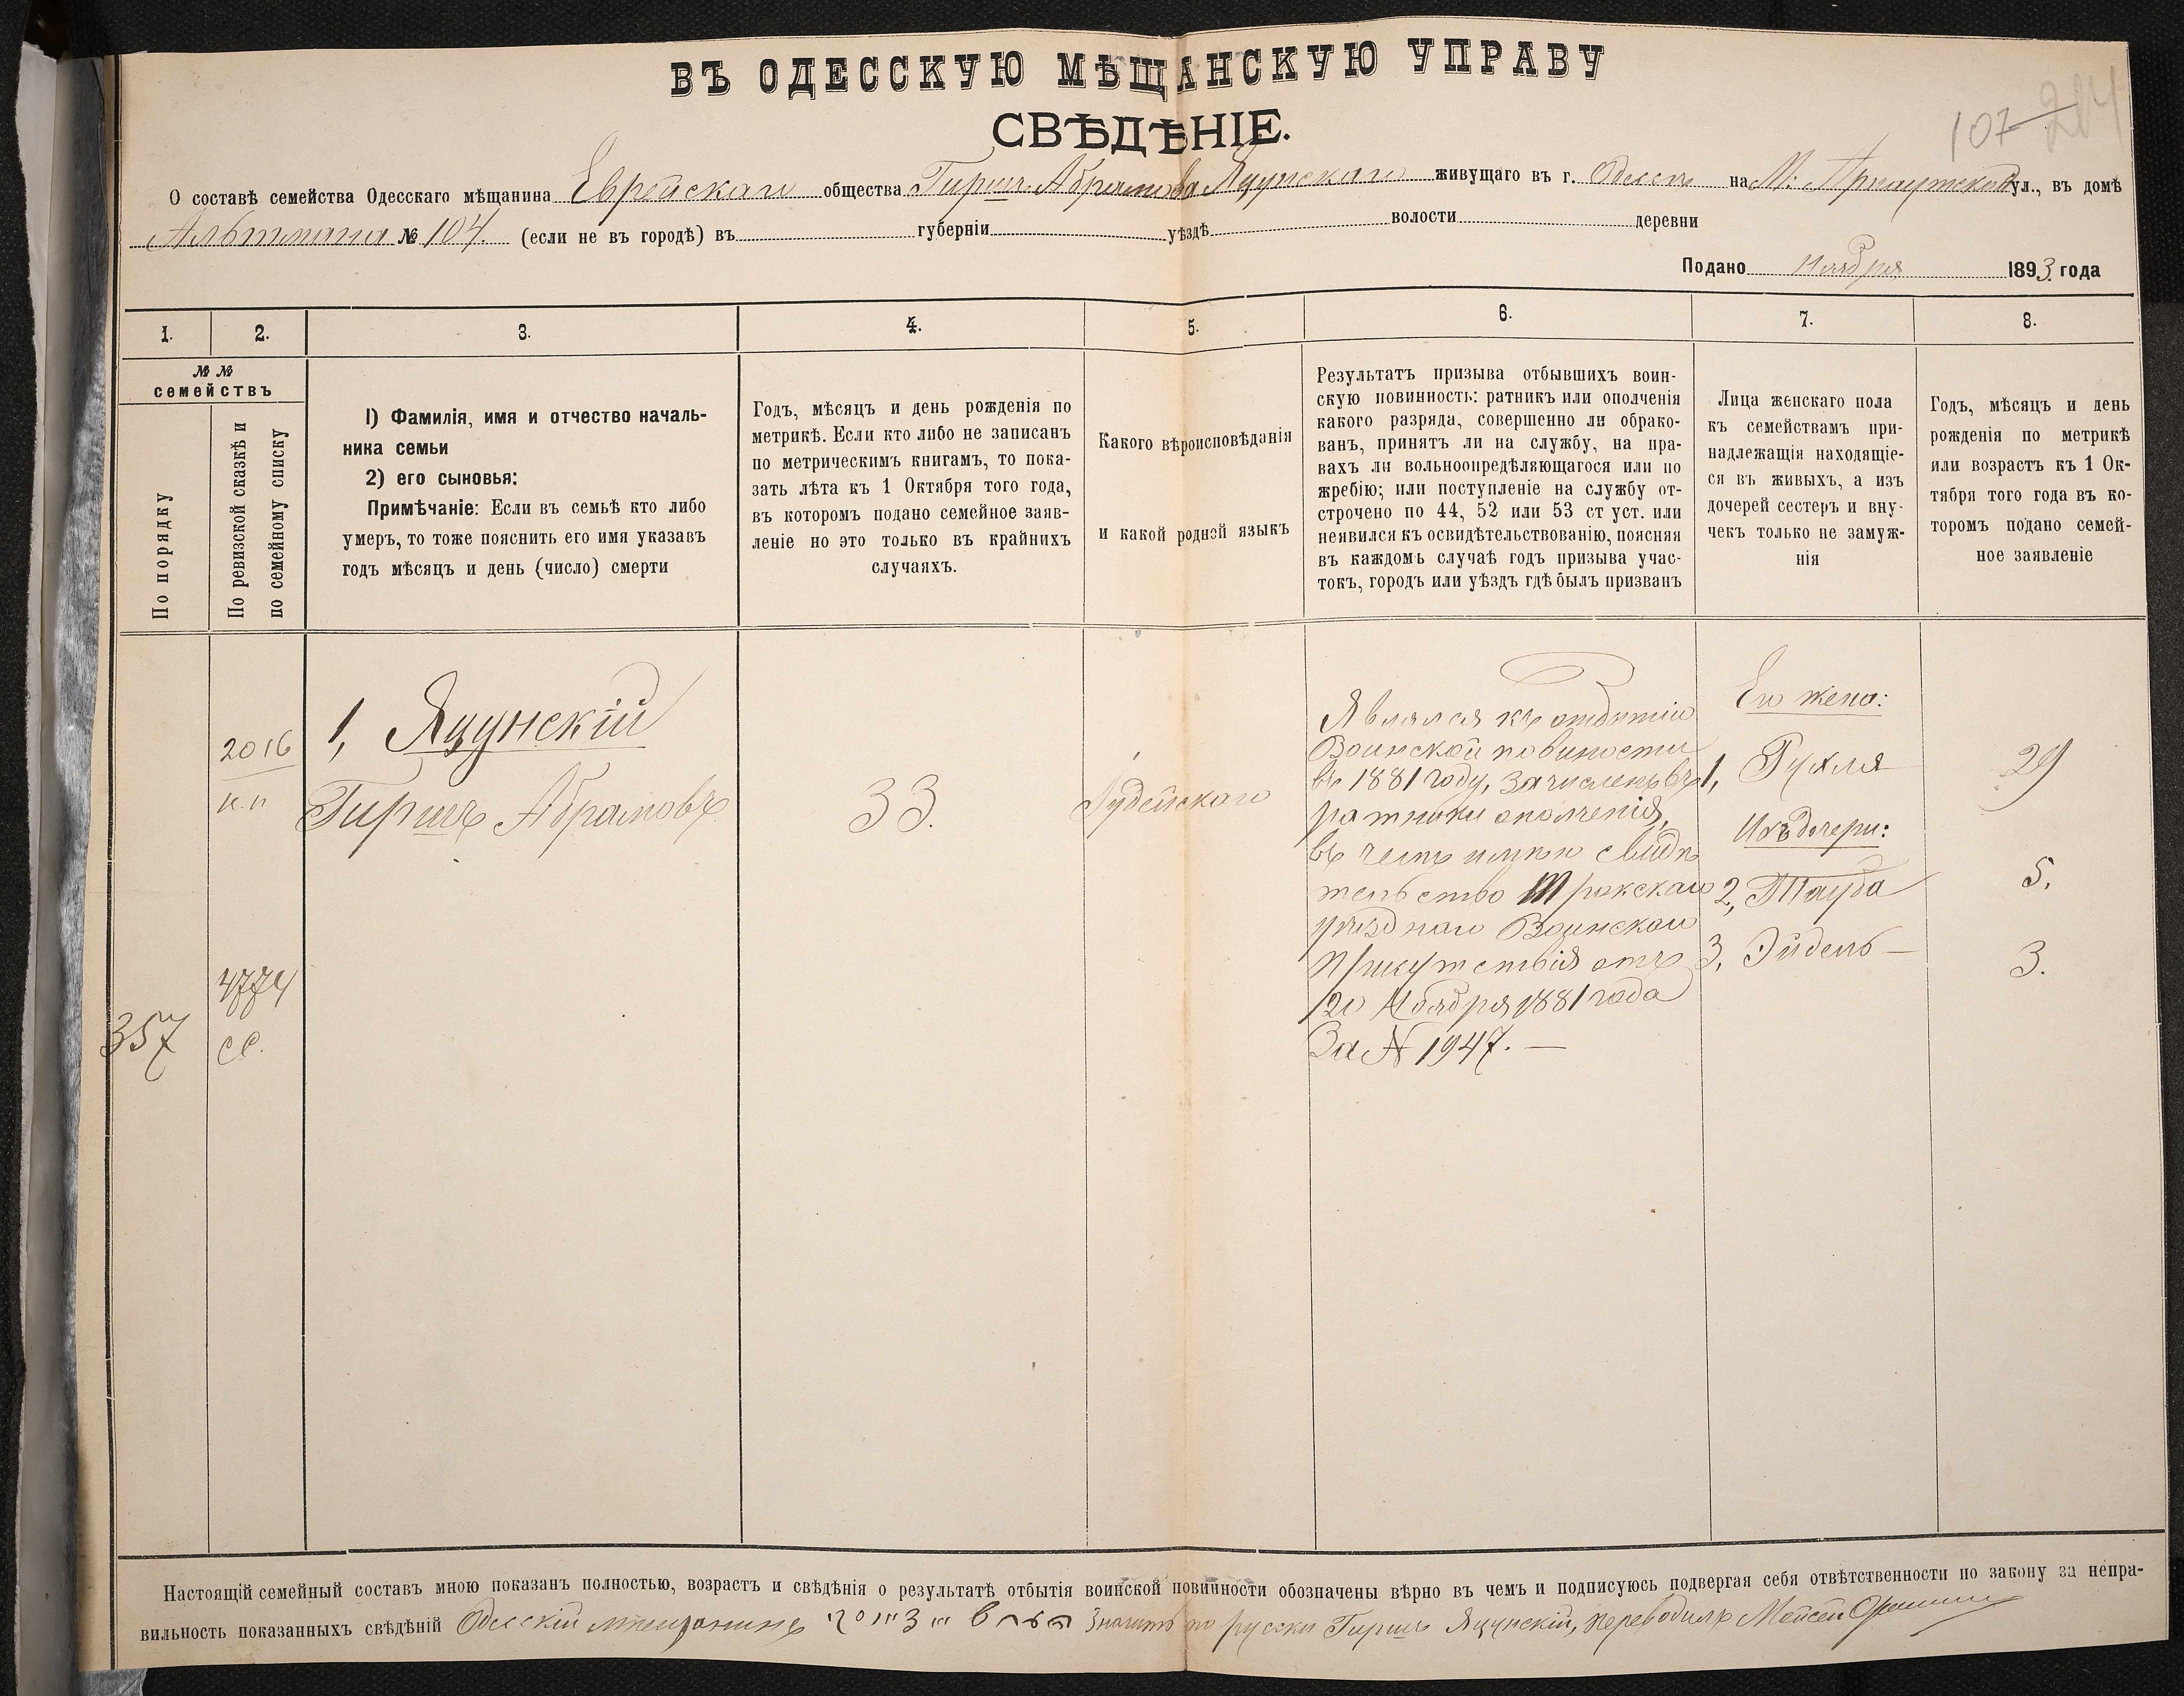 ВЪ ОДЕССКУЮ МѢЩАНСКУЮ УПРАВУ
СВѢДѢНІЕ.
107 204
О составѣ семейства Одесскаго мѣщанина Еврейскаго общества Гирша Абрамова Яцунскаго живущаго въ г. Одессѣ на М: Арнаутской ул., въ домѣ
Альтмана № 104. (если не въ городѣ) въ губерніи уѣздѣ волости деревни
Подано Ноября 1893 года
1.
2.
3.
4.
5.
6.
7.
8.
№ №
семействъ
По порядку
По ревизской сказкѣ и
по семейному списку
1) Фамилія, имя и отчество началь-
ника семьи
2) его сыновья:
Примѣчаніе: Если въ семьѣ кто либо
умеръ, то тоже пояснить его имя указавъ
годъ мѣсяцъ и день (число) смерти
Годъ, мѣсяцъ и день рожденія по
метрикѣ. Если кто либо не записанъ
по метрическимъ книгамъ, то пока-
зать лѣта къ 1 Октября того года,
въ которомъ подано семейное заяв-
леніе но это только въ крайнихъ
случаяхъ.
Какого вѣроисповѣданія
и какой родной языкъ
Результатъ призыва отбывшихъ воин-
скую повинность: ратникъ или ополченія
какого разряда, совершенно ли обрако-
ванъ, принятъ ли на службу, на пра-
вахъ ли вольноопредѣляющагося или по
жребію; или поступленіе на службу от-
строчено по 44, 52 или 53 ст уст. или
неявился къ освидѣтельствованію, поясняя
въ каждомъ случаѣ годъ призыва учас-
токъ, городъ или уѣздъ гдѣ былъ призванъ
Лица женскаго пола
къ семействамъ при-
надлежащія находящіе-
ся въ живыхъ, а изъ
дочерей сестеръ и вну-
чекъ только не замуж-
нія
Годъ, мѣсяцъ и день
рожденія по метрикѣ
или возрастъ къ 1 Ок-
тября того года въ ко-
торомъ подано семей-
ное заявленіе
357
2016
к.п
4774
сс.
1, Яцунскій
Гиршъ Абрамовъ
33.
Іудейскаго
Являлся къ отбытію
Воинской повиности
въ 1881 году, зачисленъ въ
ратники ополченія,
въ чемъ имѣю свидѣ
тельство Трокскаго
уѣзднаго Воинскаго
Присутствія отъ
20 Ноября 1881 года
За № 1947. —
Его жена:
1, Рухля
Ихъ дочери:
2, Тауба
3, Эйдель —
29
5.
3.
Настоящій семейный составъ мною показанъ полностью, возрастъ и свѣдѣнія о результатѣ отбытія воинской повинности обозначены вѣрно въ чемъ и подписуюсь подвергая себя отвѣтственности по закону за непра-
вильность показанныхъ свѣдѣній Одесскій мѣщанинъ значитъ по русски Гиршъ Яцунскій, переводилъ Мойсей